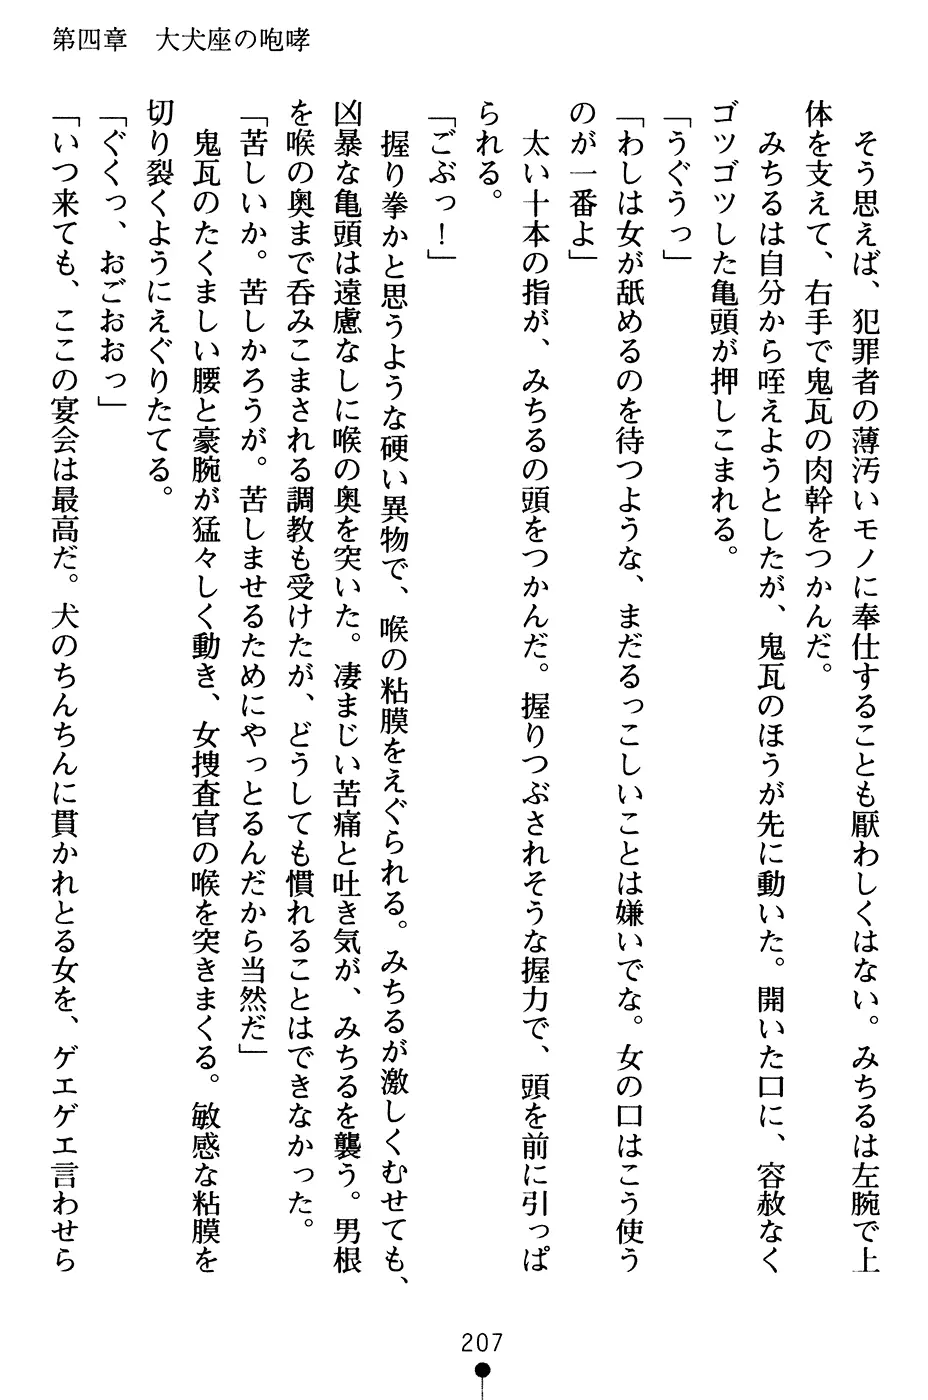 第四章　大犬座の咆哮
　そう思えば、犯罪者の薄汚いモノに奉仕することも厭わしくはない。みちるは左腕で上
体を支えて、右手で鬼瓦の肉幹をつかんだ。
　みちるは自分から咥えようとしたが、鬼瓦のほうが先に動いた。開いた口に、容赦なく
ゴツゴツした亀頭が押しこまれる。
「うぐうっ」
「わしは女が舐めるのを待つような、まだるっこしいことは嫌いでな。女の口はこう使う
のが一番よ」
　太い十本の指が、みちるの頭をつかんだ。握りつぶされそうな握力で、頭を前に引っぱ
られる。
「ごぶっ！」
　握り拳かと思うような硬い異物で、喉の粘膜をえぐられる。みちるが激しくむせても、
凶暴な亀頭は遠慮なしに喉の奥を突いた。凄まじい苦痛と吐き気が、みちるを襲う。男根
を喉の奥まで呑みこまされる調教も受けたが、どうしても慣れることはできなかった。
「苦しいか。苦しかろうが。苦しませるためにやっとるんだから当然だ」
　鬼瓦のたくましい腰と豪腕が猛々しく動き、女捜査官の喉を突きまくる。敏感な粘膜を
切り裂くようにえぐりたてる。
「ぐくっ、おごおおっ」
「いつ来ても、ここの宴会は最高だ。犬のちんちんに貫かれとる女を、ゲエゲエ言わせら
207